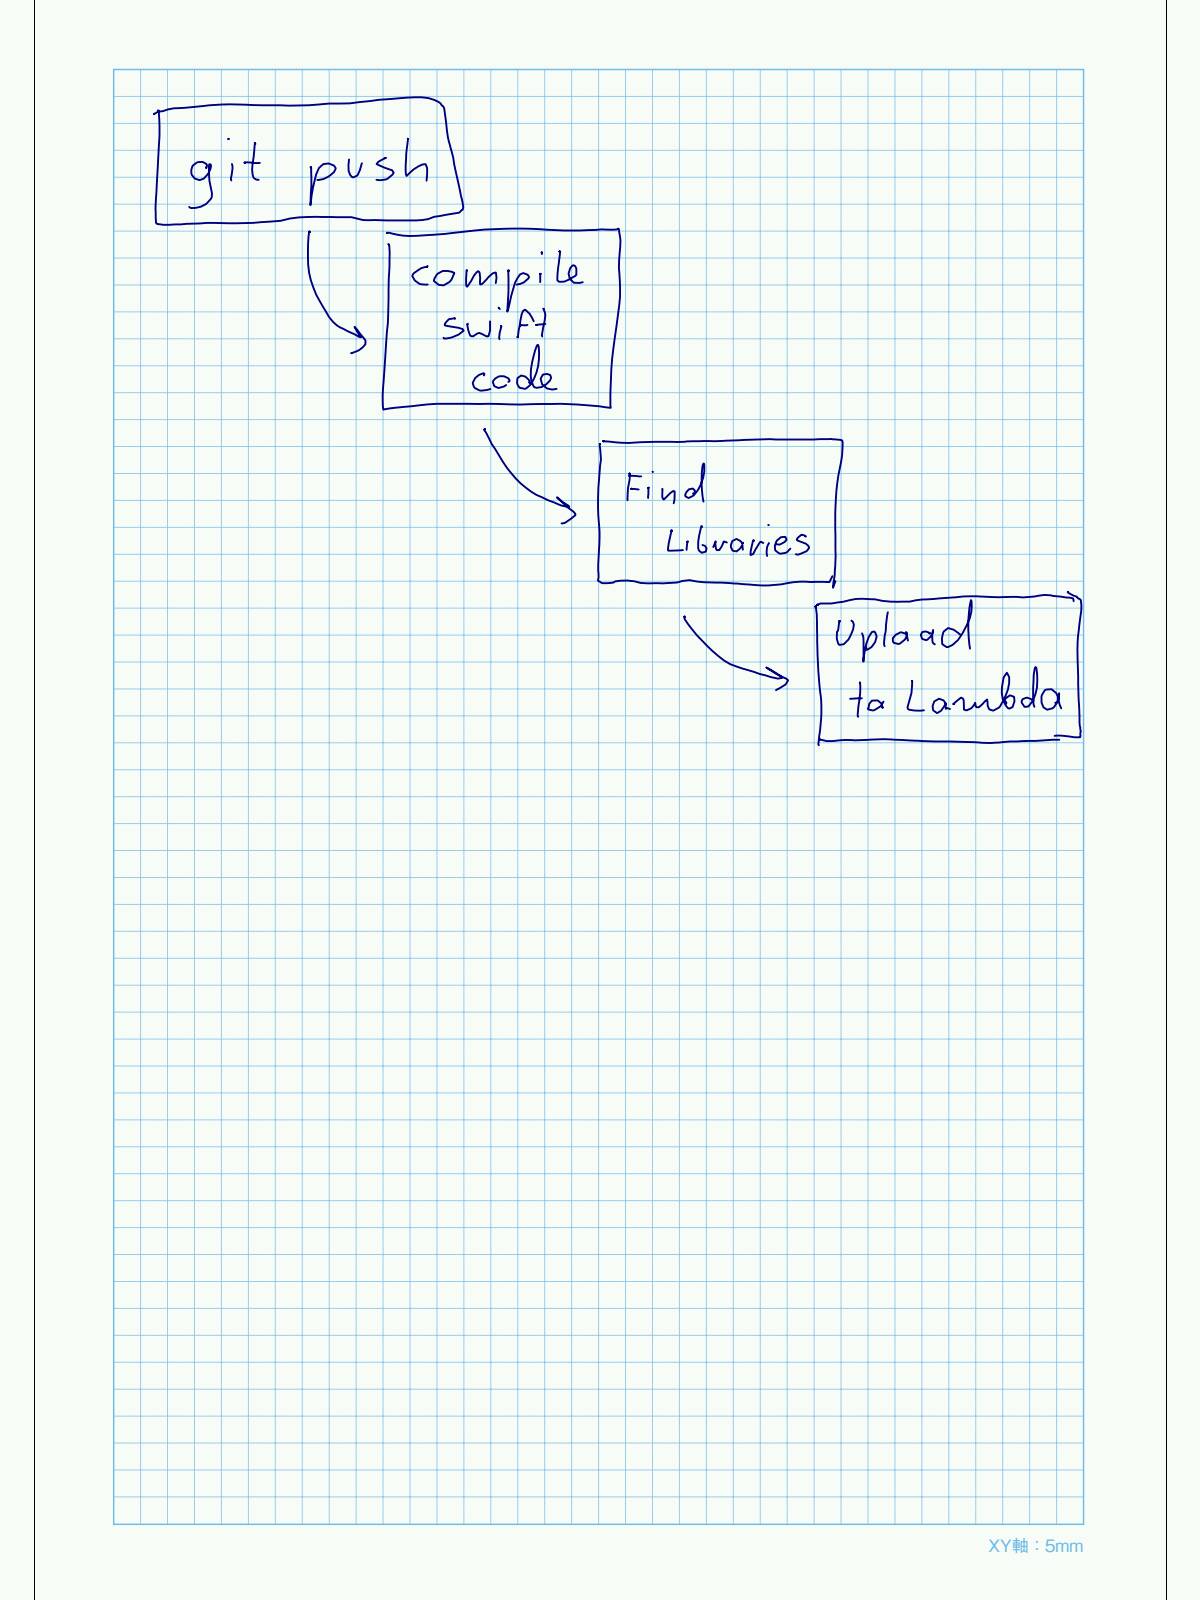 git push
compile
swift
code
Find
Libraries
Upload
to Lambda
XY軸：5mm